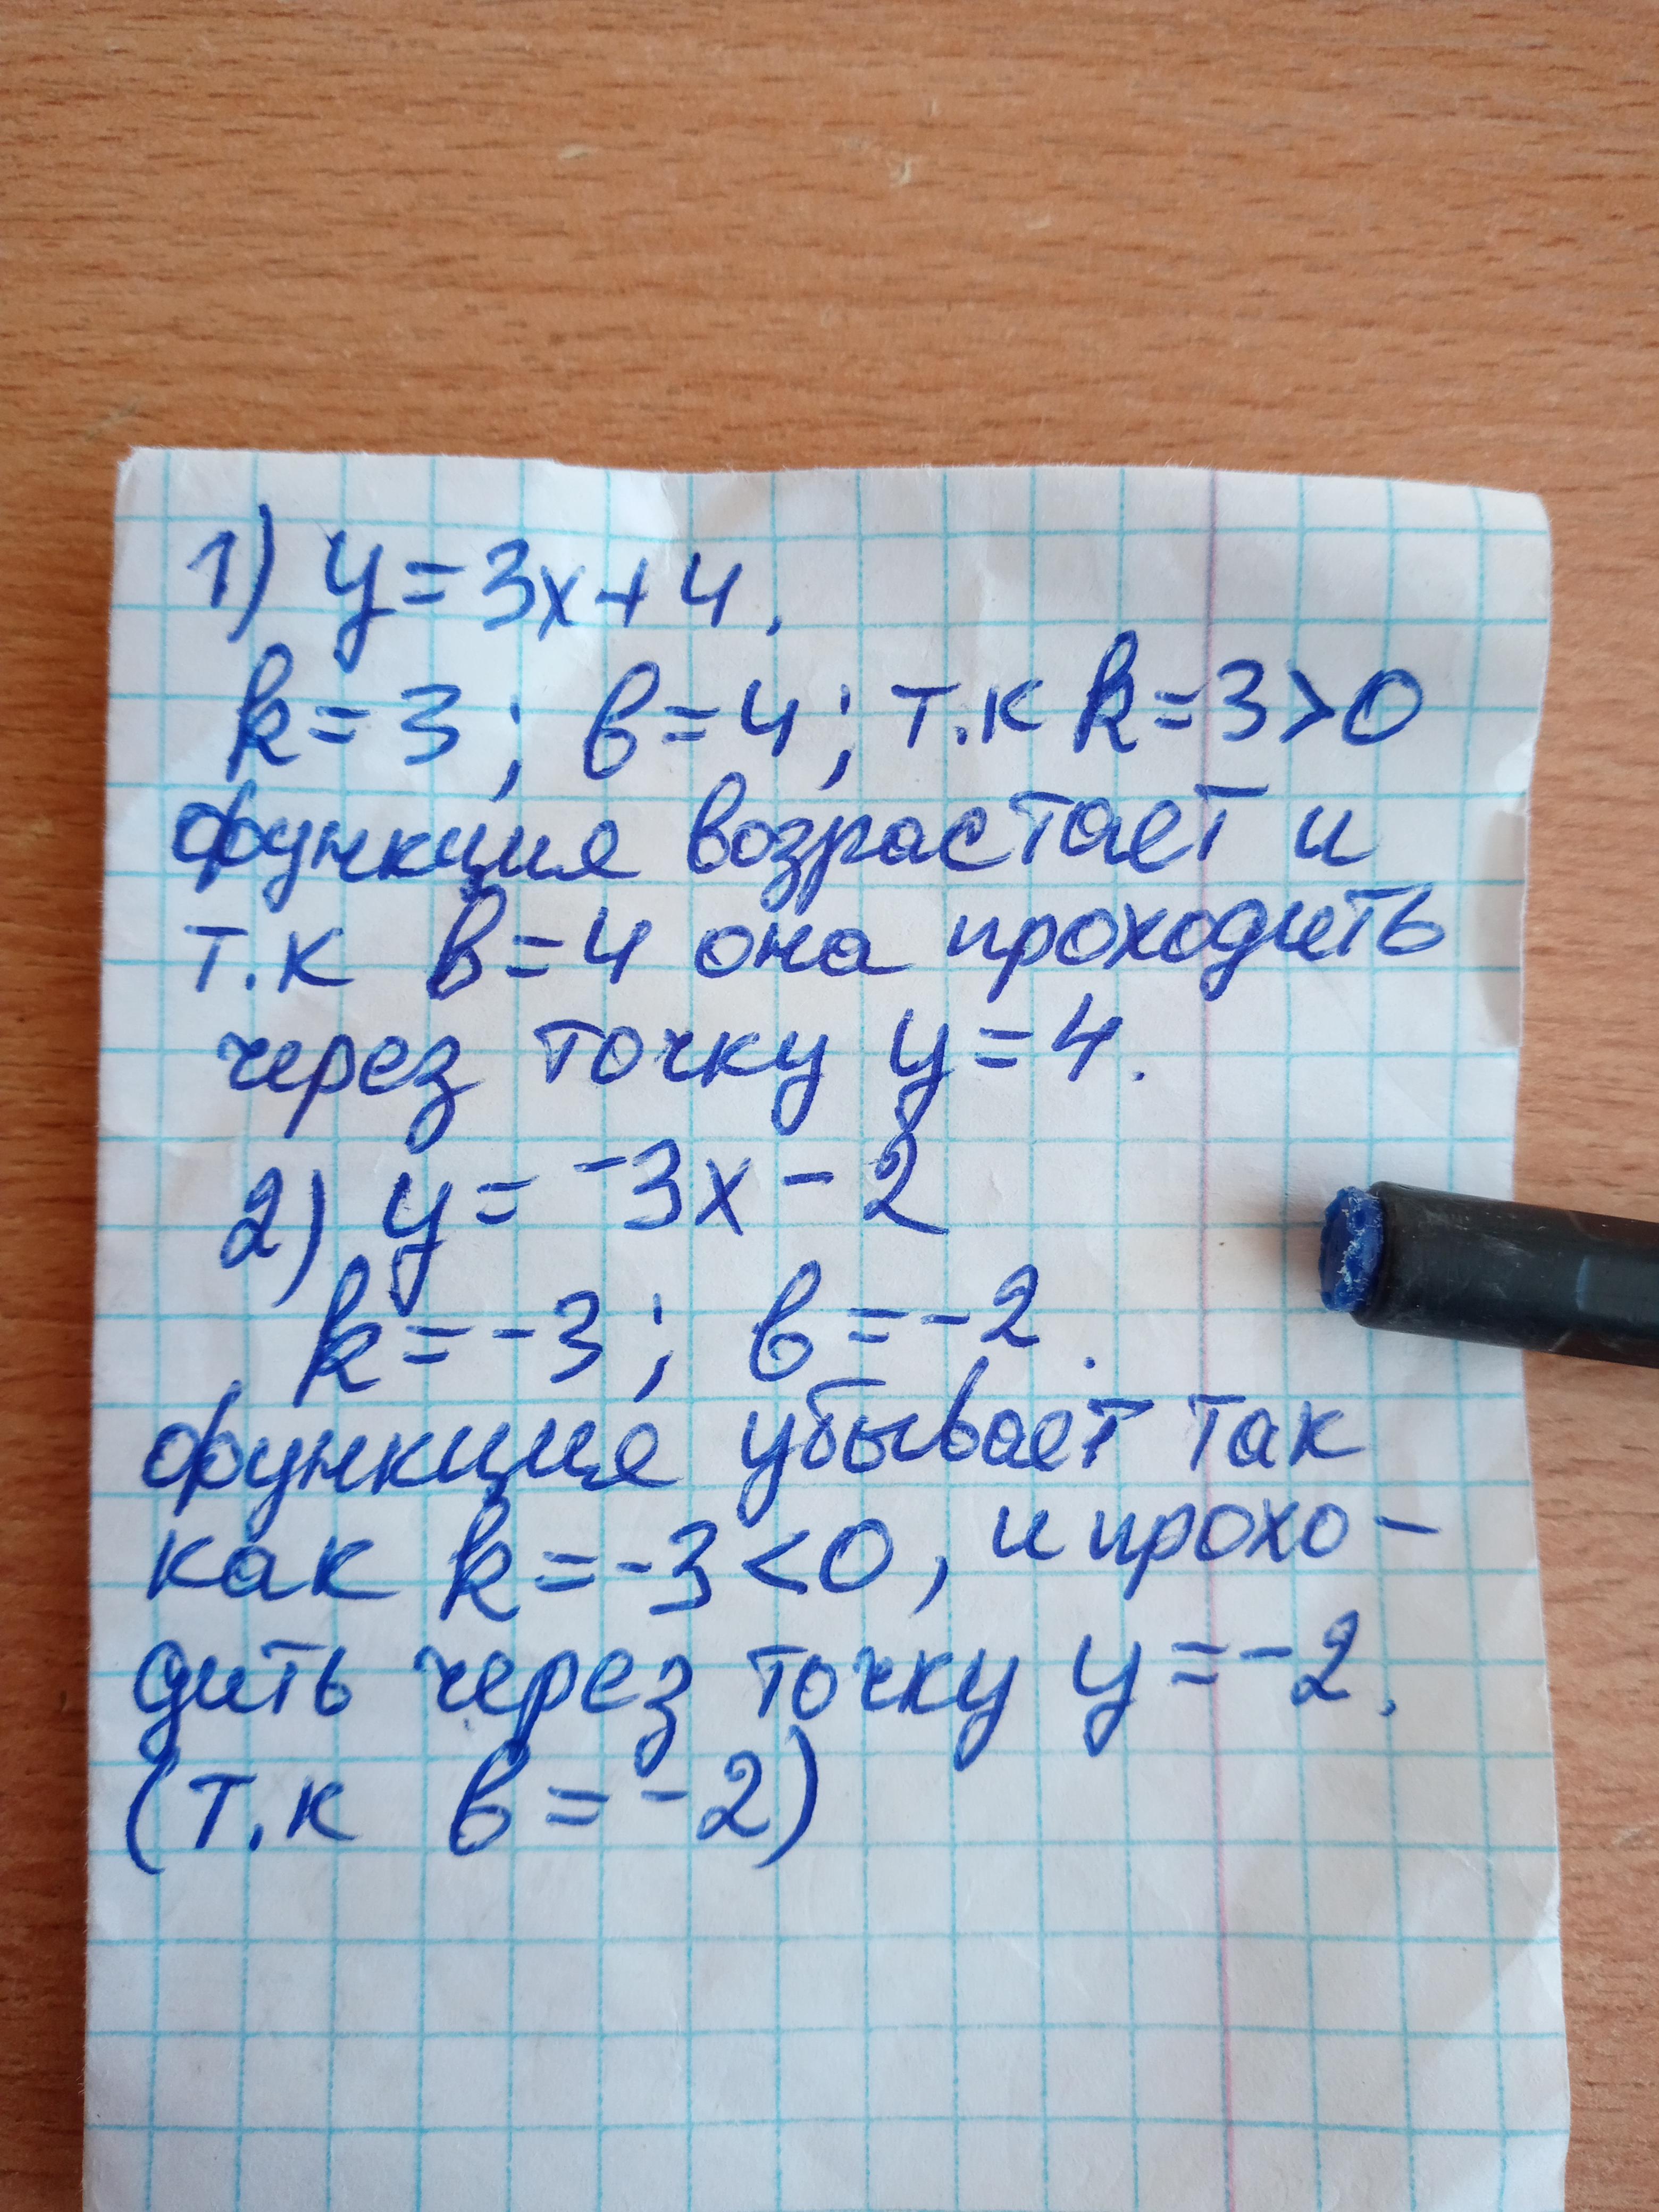 1) y=3x+4.
k=3; b=4; т.к k=3>0
функция возрастает и
т.к b=4 она проходить
через точку y=4.
2) y=-3x-2
k=-3; b=-2.
функция убывает так
как k=-3<0, и прохо-
дить через точку y=-2.
(т.к b=-2)